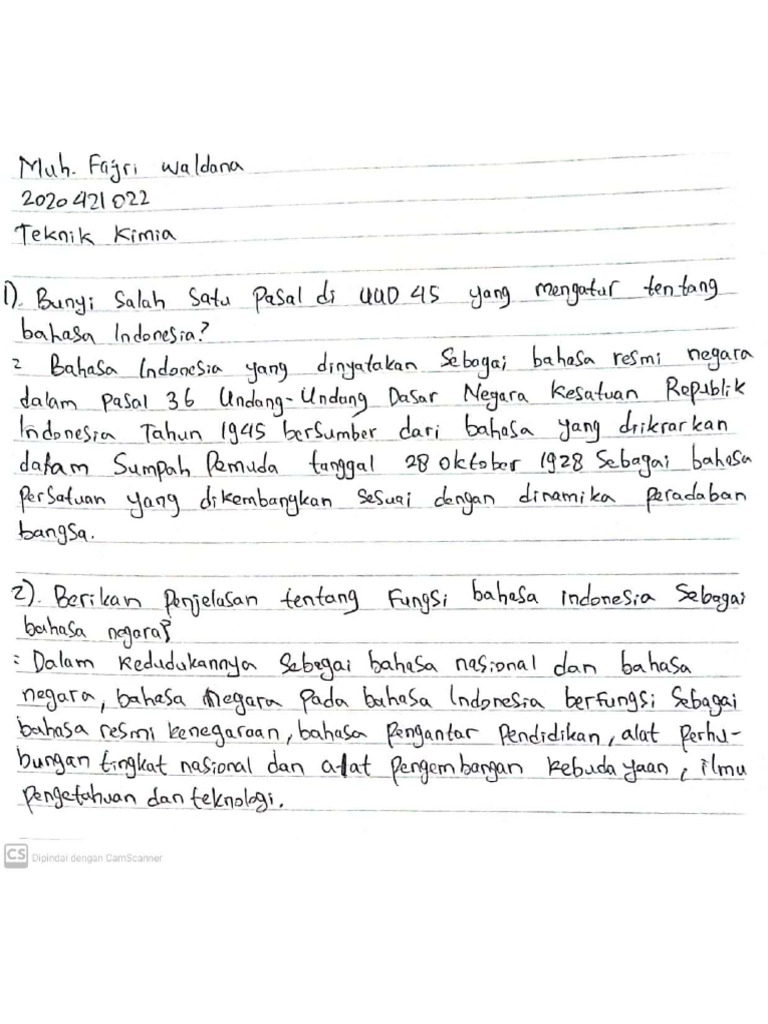 Muh. Fajri Waldana
2020421022
Teknik Kimia
1). Bunyi Salah Satu Pasal di UUD 45 yang mengatur tentang
bahasa Indonesia?
= Bahasa Indonesia yang dinyatakan Sebagai bahasa resmi negara
dalam pasal 36 Undang-Undang Dasar Negara Kesatuan Republik
Indonesia Tahun 1945 bersumber dari bahasa yang diikrarkan
dalam Sumpah Pemuda tanggal 28 Oktober 1928 Sebagai bahasa
Persatuan yang dikembangkan sesuai dengan dinamika peradaban
bangsa.
2). Berikan Penjelasan tentang Fungsi bahasa Indonesia Sebagai
bahasa negara?
= Dalam Kedudukannya Sebagai bahasa nasional dan bahasa
negara, bahasa negara Pada bahasa Indonesia berfungsi Sebagai
bahasa resmi kenegaraan, bahasa Pengantar Pendidikan, alat Perhu-
bungan tingkat nasional dan alat Pengembangan Kebudayaan, ilmu
Pengetahuan dan teknologi.
CS Dipindai dengan CamScanner